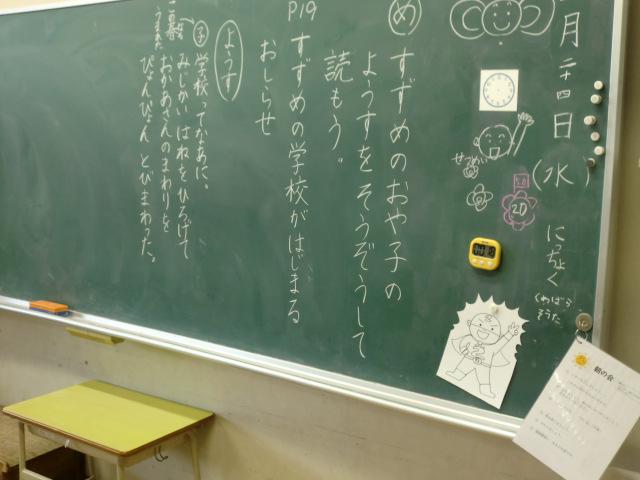 月二十四日(水)
にっちょく
くわばら
そうた
せつめい
20
め すずめのおや子の
ようすをそうぞうして
読もう。
P19
すずめの学校がはじまる
おしらせ
ようす
子 学校ってなあに。
みじかいはねをひろげて
おかあさんのまわりを
ぴょんぴょんとびまわった。
朝の会